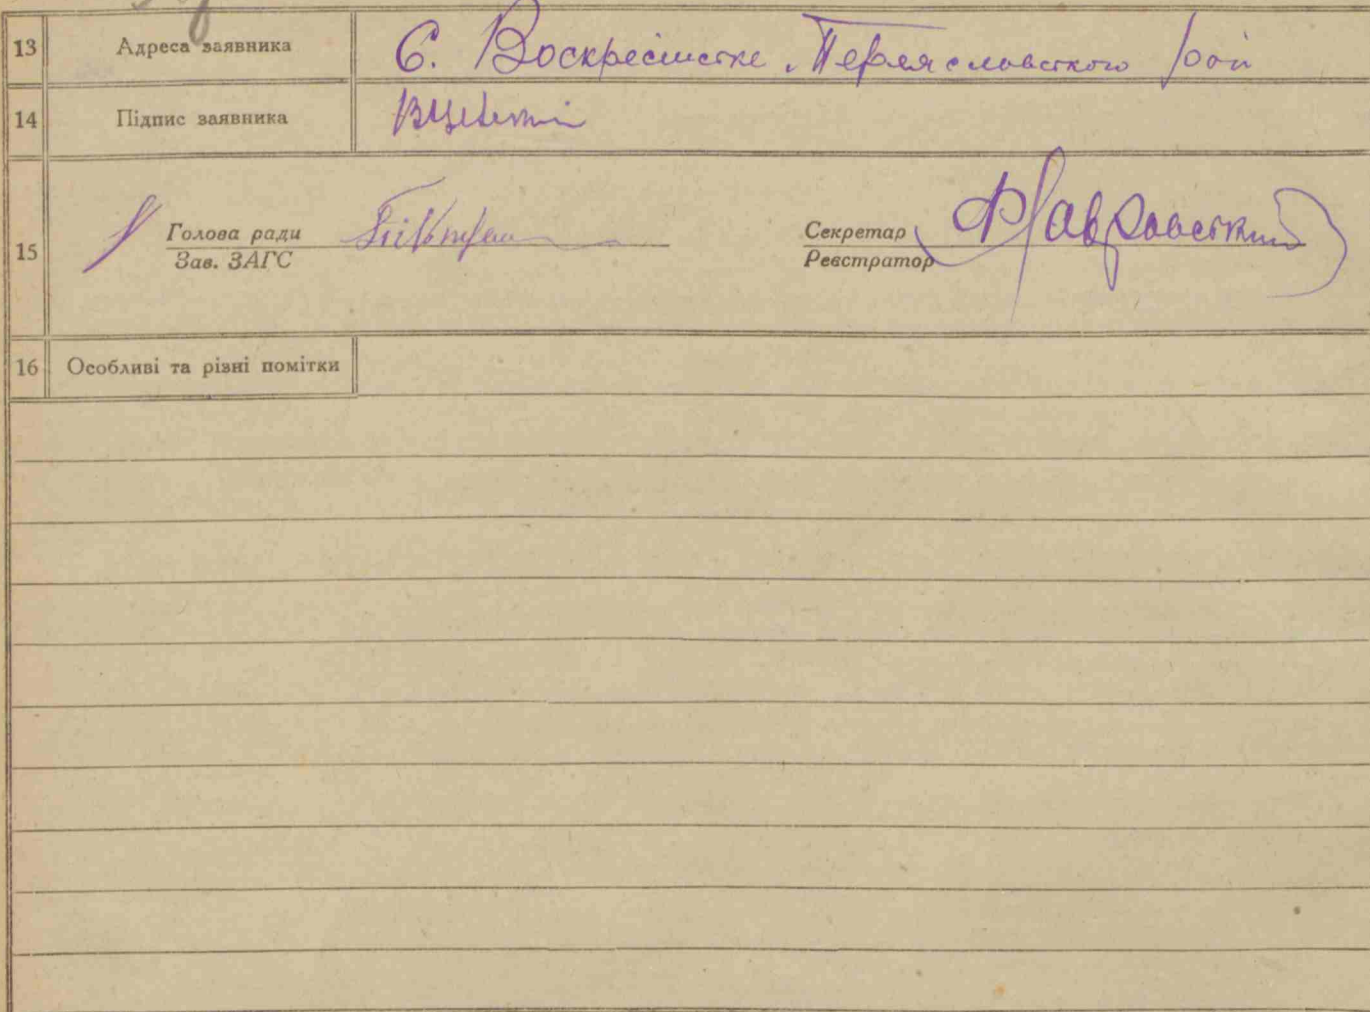 13 Адреса заявника С. Воскресінске Переяславского рай
14 Підпис заявника
15 Голова ради Секретар
Зав. ЗАГС Реєстратор
16 Особливі та різні помітки